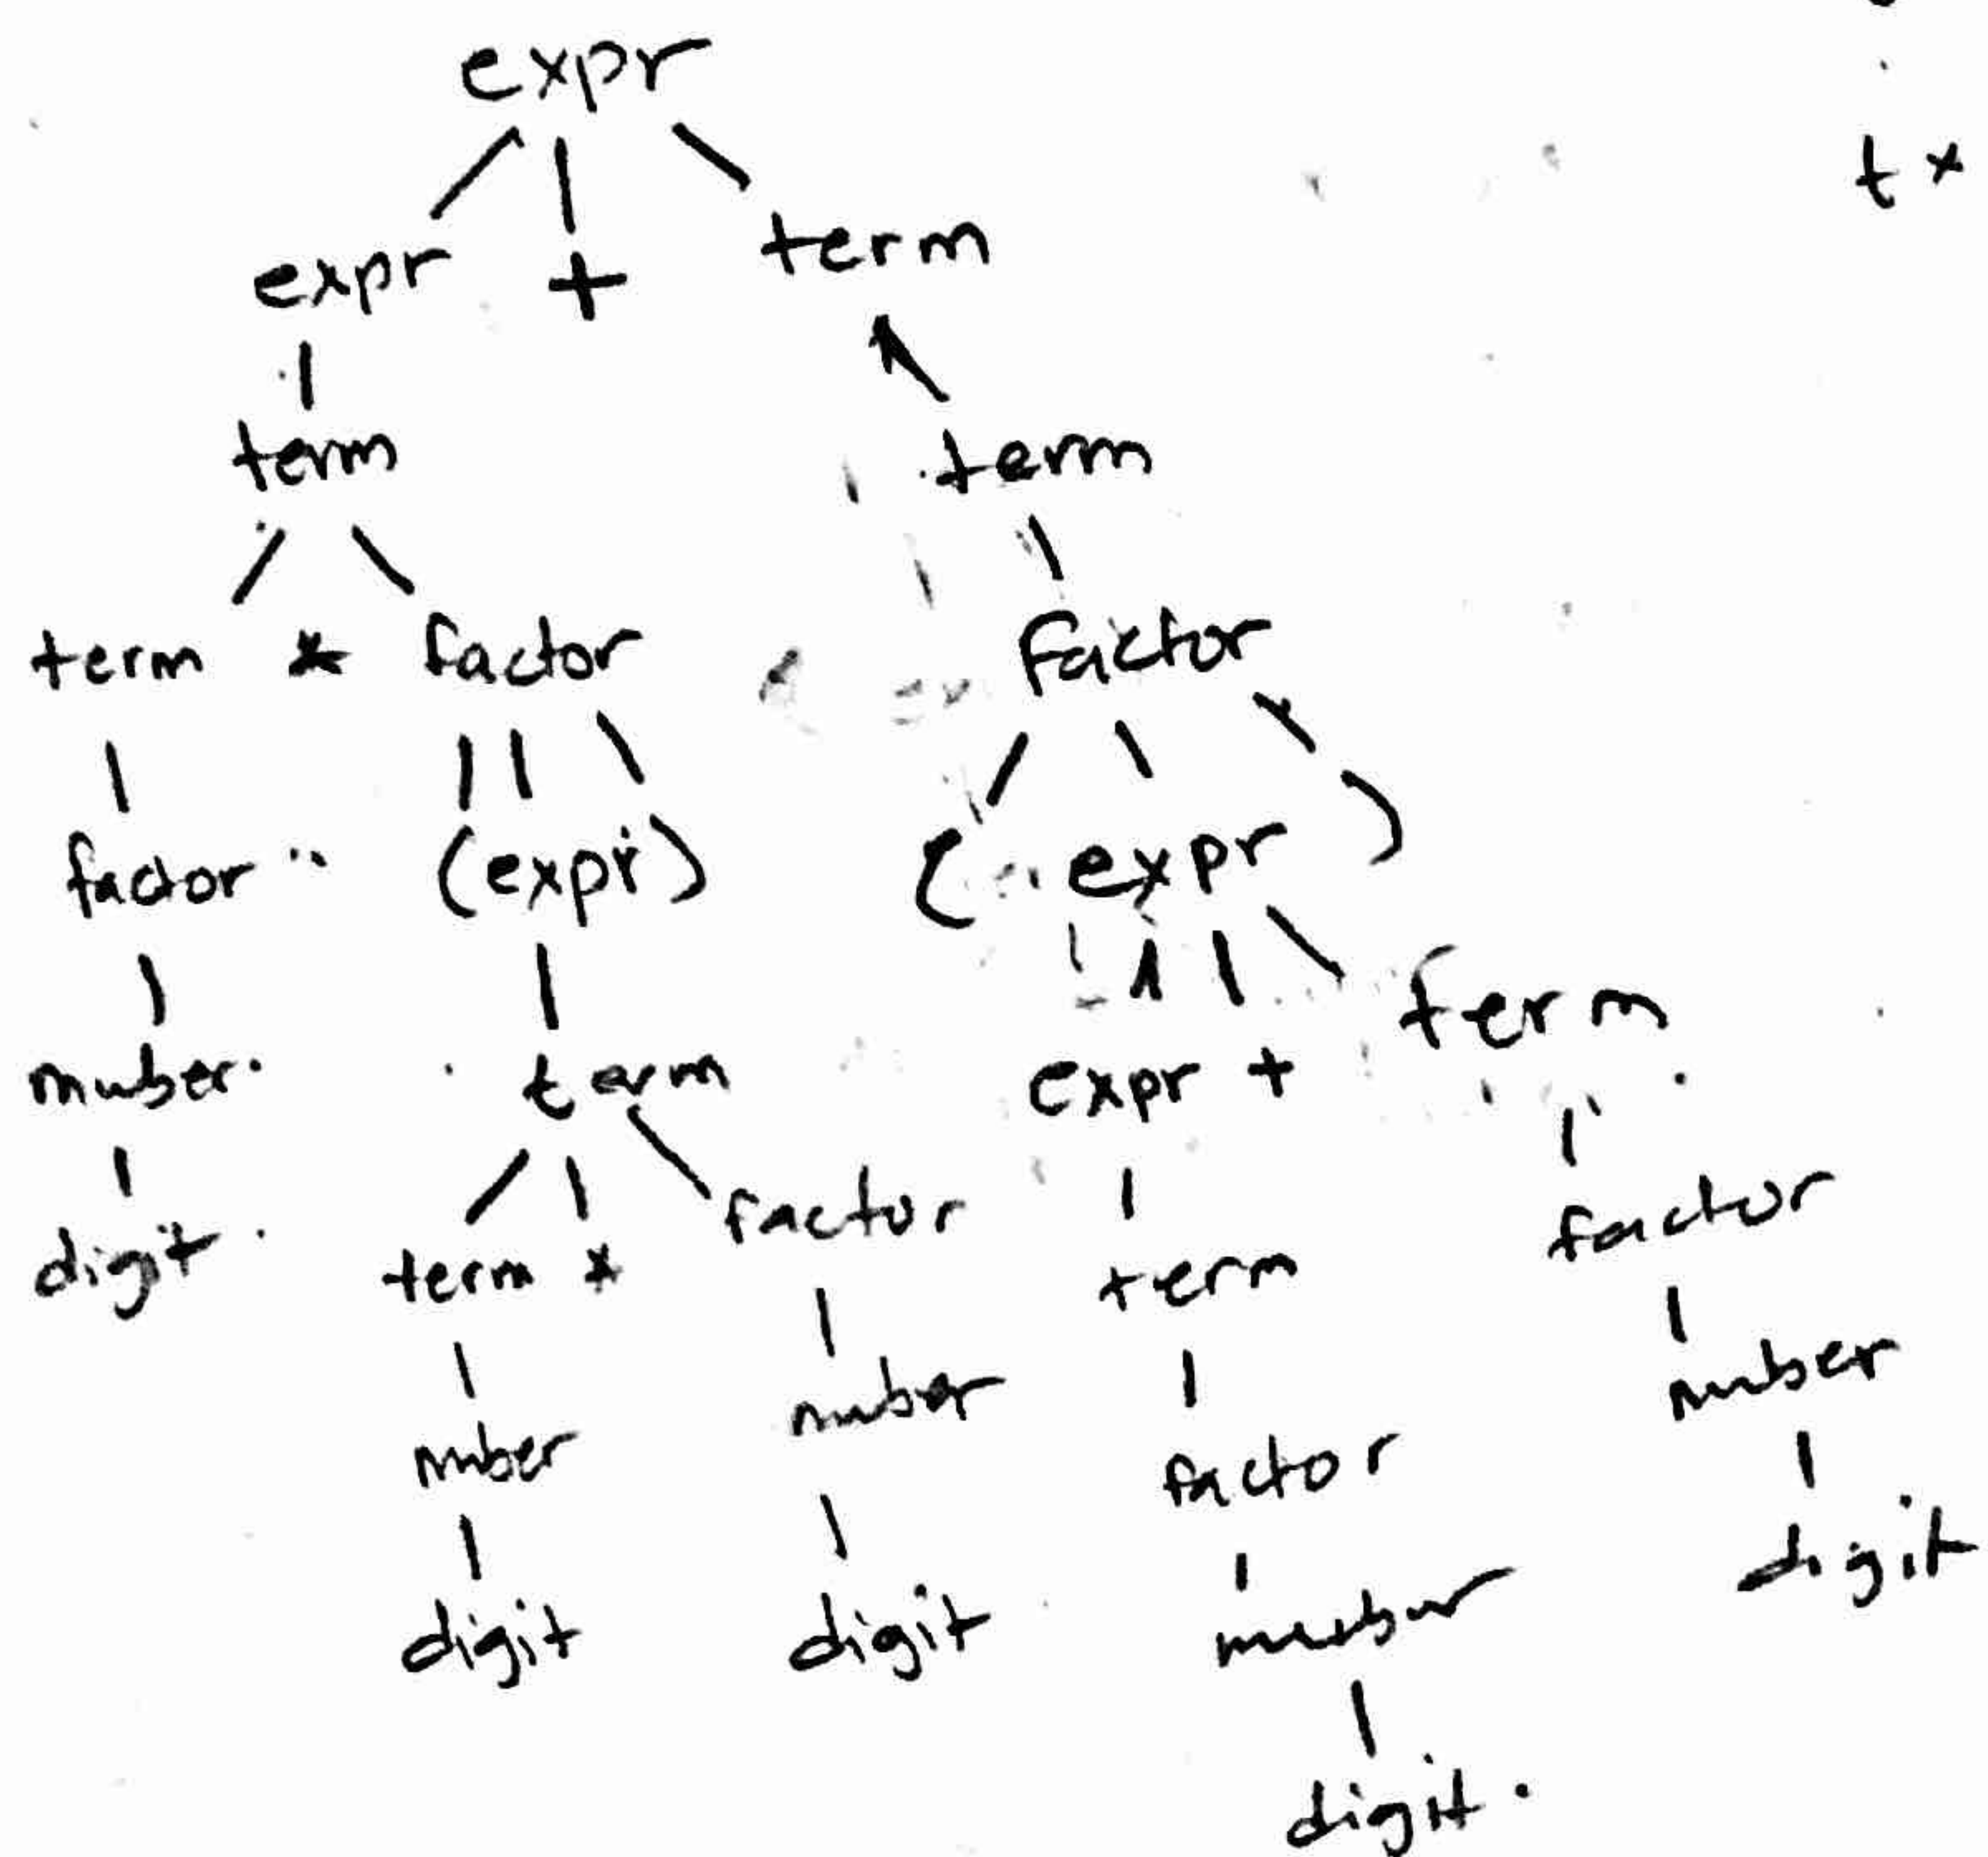 expr
t *
expr + term
term
term
term * factor
factor
factor
(expr)
( expr )
term
number
term
expr +
digit
factor
factor
term *
term
number
number
number
factor
digit
digit
digit
number
digit